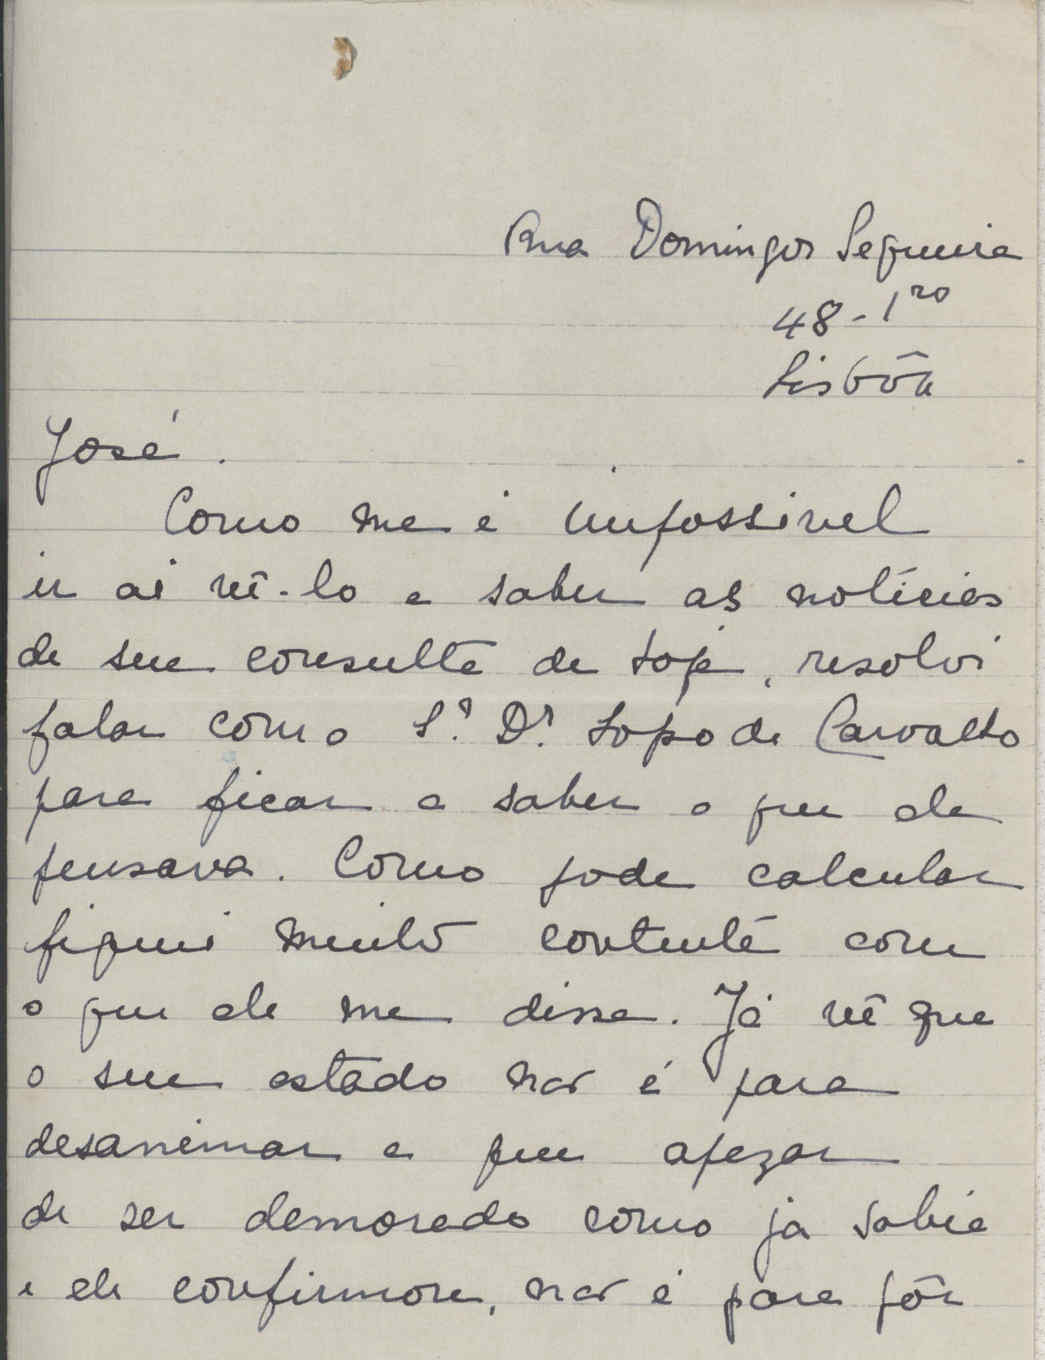 Rua Domingos Sequeira
48-1ro
Lisbôa
José.
Como me é impossivel
ir ai vê-lo e saber as notícias
de sua consulta de hoje, resolvi
falar com o Sr. Dr. Lopo de Carvalho
para ficar a saber o que ele
pensava. Como pode calcular
fiquei muito contente com
o que ele me disse. Já vê que
o seu estado não é para
desanimar e que apezar
de ser demorado como já sabia
e ele confirmou, não é para pôr